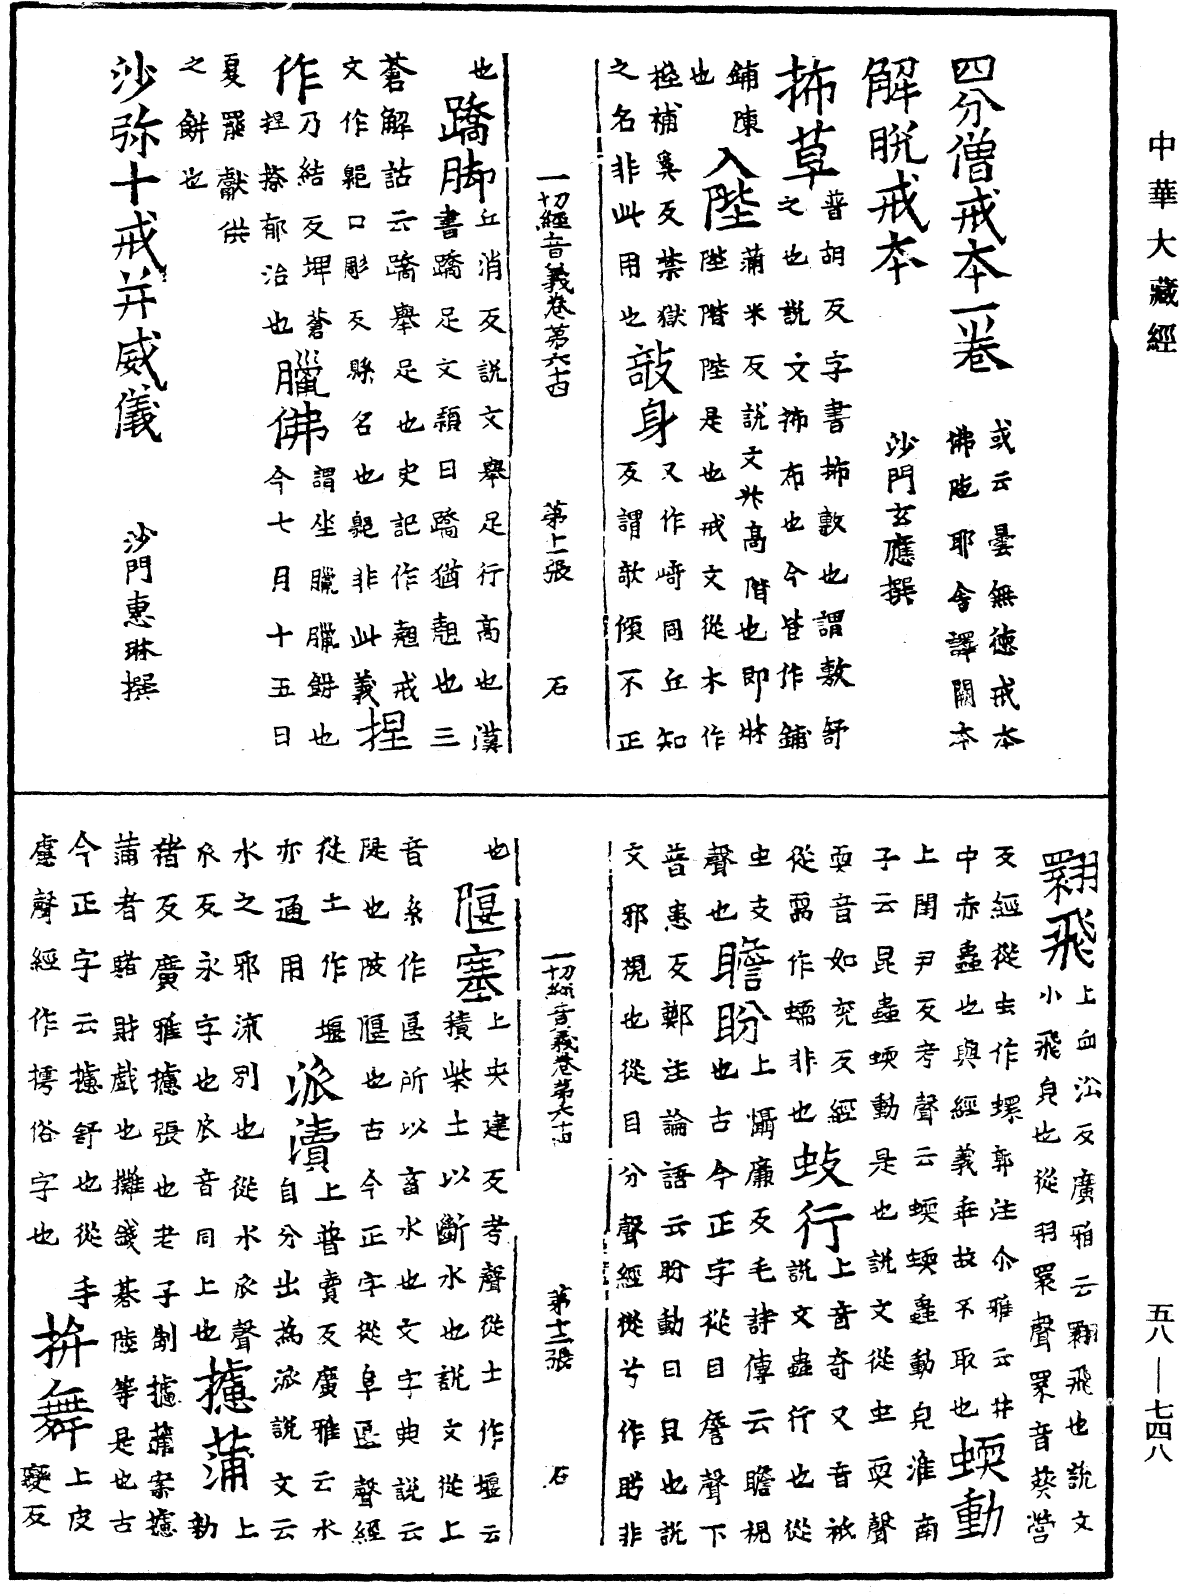 中華大藏經
四分僧戒本一卷
或云曇無德戒本
佛陁耶舍譯闕本
解脫戒本
沙門玄應撰
抪草
普胡反字書抪敷也謂敷舒
之也說文抪布也今皆作鋪
鋪陳
也
入陛
蒲米反說文升高階也即牀
陛階陛是也戒文從木作
梐補奚反禁獄
之名非此用也
敧身
又作崎同丘知
反謂敧傾不正
一切經音義卷第六十四
第十一張
石
也
蹻脚
丘消反說文舉足行高也漢
書蹻足文穎曰蹻猶翹也三
蒼解詁云蹻舉足也史記作翹戒
文作䫏口彫反縣名也䫏非此義
捏
作
乃結反埤蒼
捏搽郁治也
臘佛
謂坐臘臘餅也
今七月十五日
夏罷獻供
之餅也
沙弥十戒并威儀
沙門惠琳撰
翾飛
上血沿反廣雅云翾飛也說文
小飛皃也從羽睘聲睘音葵營
反經從虫作蠉郭注尒雅云井
中赤蟲也與經義乖故不取也
蝡動
上閏尹反考聲云蝡蝡蟲動皃淮南
子云昆蟲蝡動是也說文從虫耎聲
耎音如兖反經
從需作蠕非也
蚑行
上音奇又音祇
說文蟲行也從
虫支
聲也
瞻盼
上懾廉反毛詩傳云瞻視
也古今正字從目詹聲下
普患反鄭注論語云盼動目皃也說
文邪視也從目分聲經從兮作盻非
一切經音義卷第六十四
第十二張
石
也
堰塞
上央建反考聲從士作堰云
積柴土以斷水也說文從上
音糸作匽所以畜水也文字典說云
陡也陂隁也古今正字從阜匽聲經
從土作堰
亦通用
派瀆
上普賣反廣雅云水
自分出為派說文云
水之邪流別也從水𠂢聲上
𠂢反永字也𠂢音同上也
攄蒲
勑
猪反廣雅攄張也老子制攄蒱案攄
蒲者賭財戲也攤錢碁陸等是也古
今正字云攄舒也從手
𧇽聲經作摴俗字也
拚舞
上皮
變反
五八—七四八